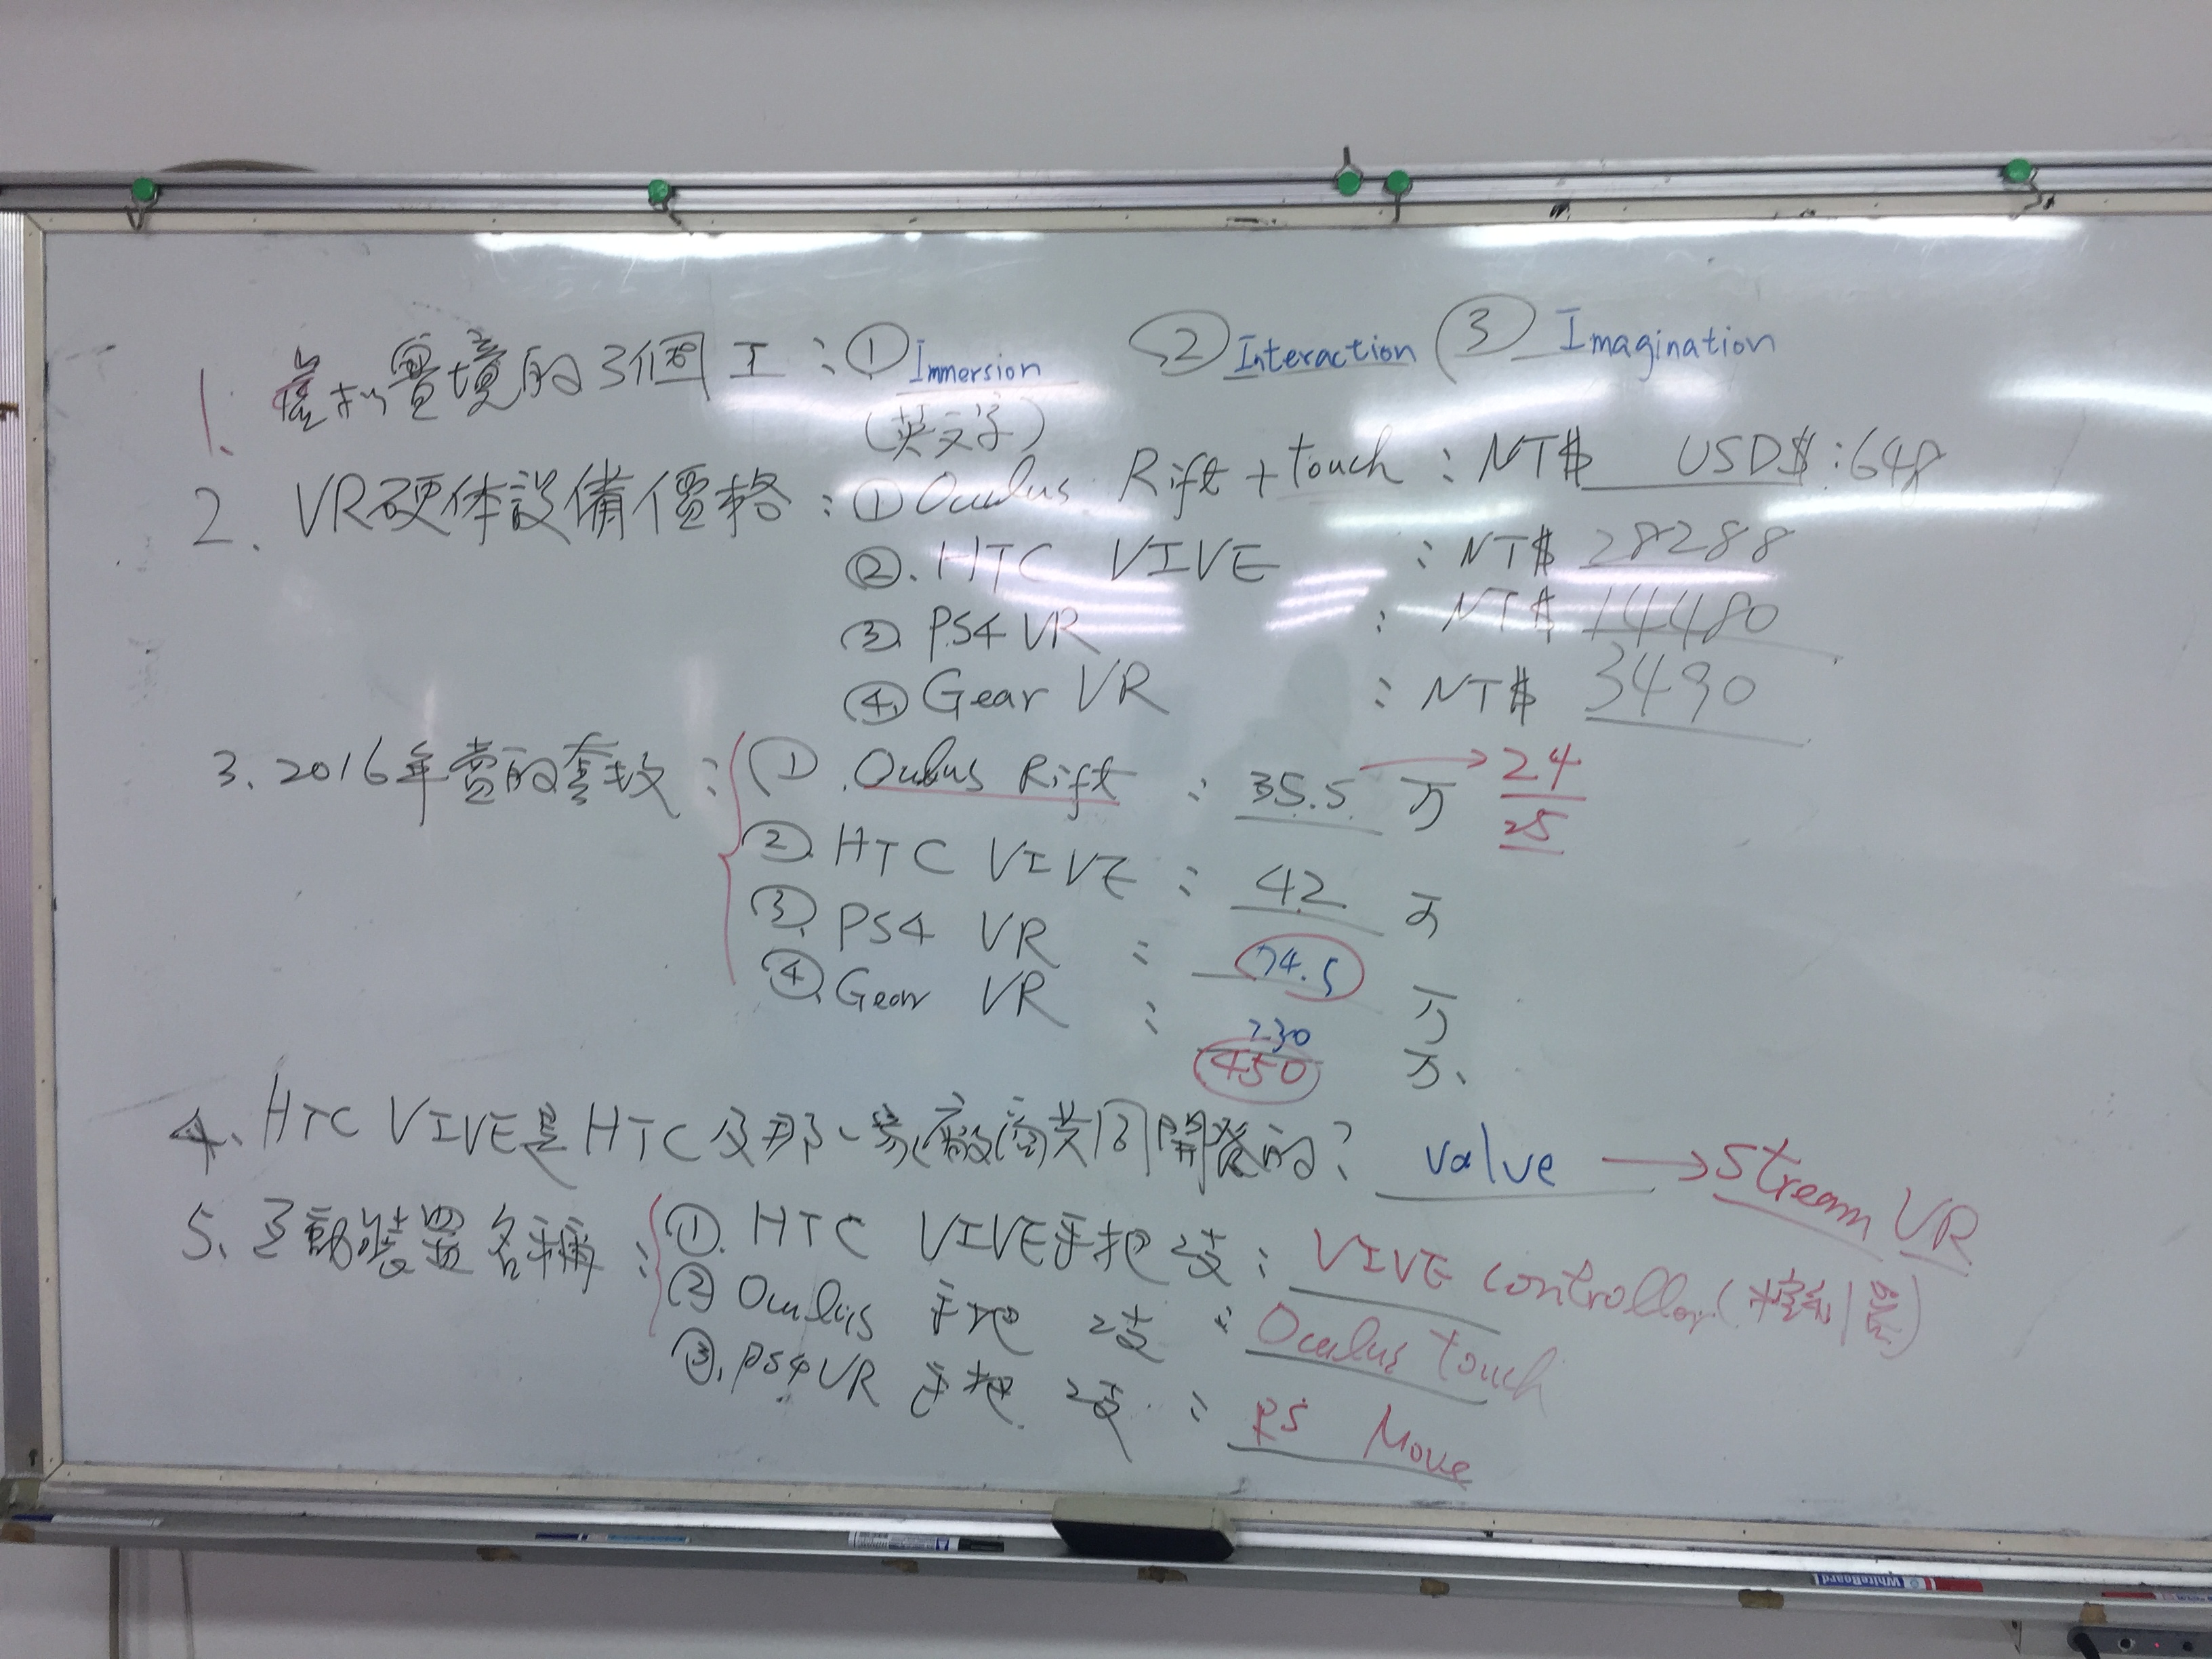 1. 虛拟實境的3個I：① Immersion ② Interaction ③ Imagination
(英文字)
2. VR硬体設備價格：① Oculus Rift + touch：NT$ USD$:648
②. HTC VIVE：NT$ 28288
③ PS4 VR：NT$ 14480
④ Gear VR：NT$ 3490
3. 2016年賣的套数：① Oculus Rift：35.5 万 → 24
25
② HTC VIVE：42 万
③ PS4 VR：74.5 万
④ Gear VR：230
450 万、
4、HTC VIVE是HTC及那一家廠商共同開發的？ value → Stream VR
5、互動裝置名稱：①. HTC VIVE手把2支：VIVE controller
② Oculus 手把 2支：Oculus touch
③. PS4VR 手把 2支：PS Move
WhiteBoard